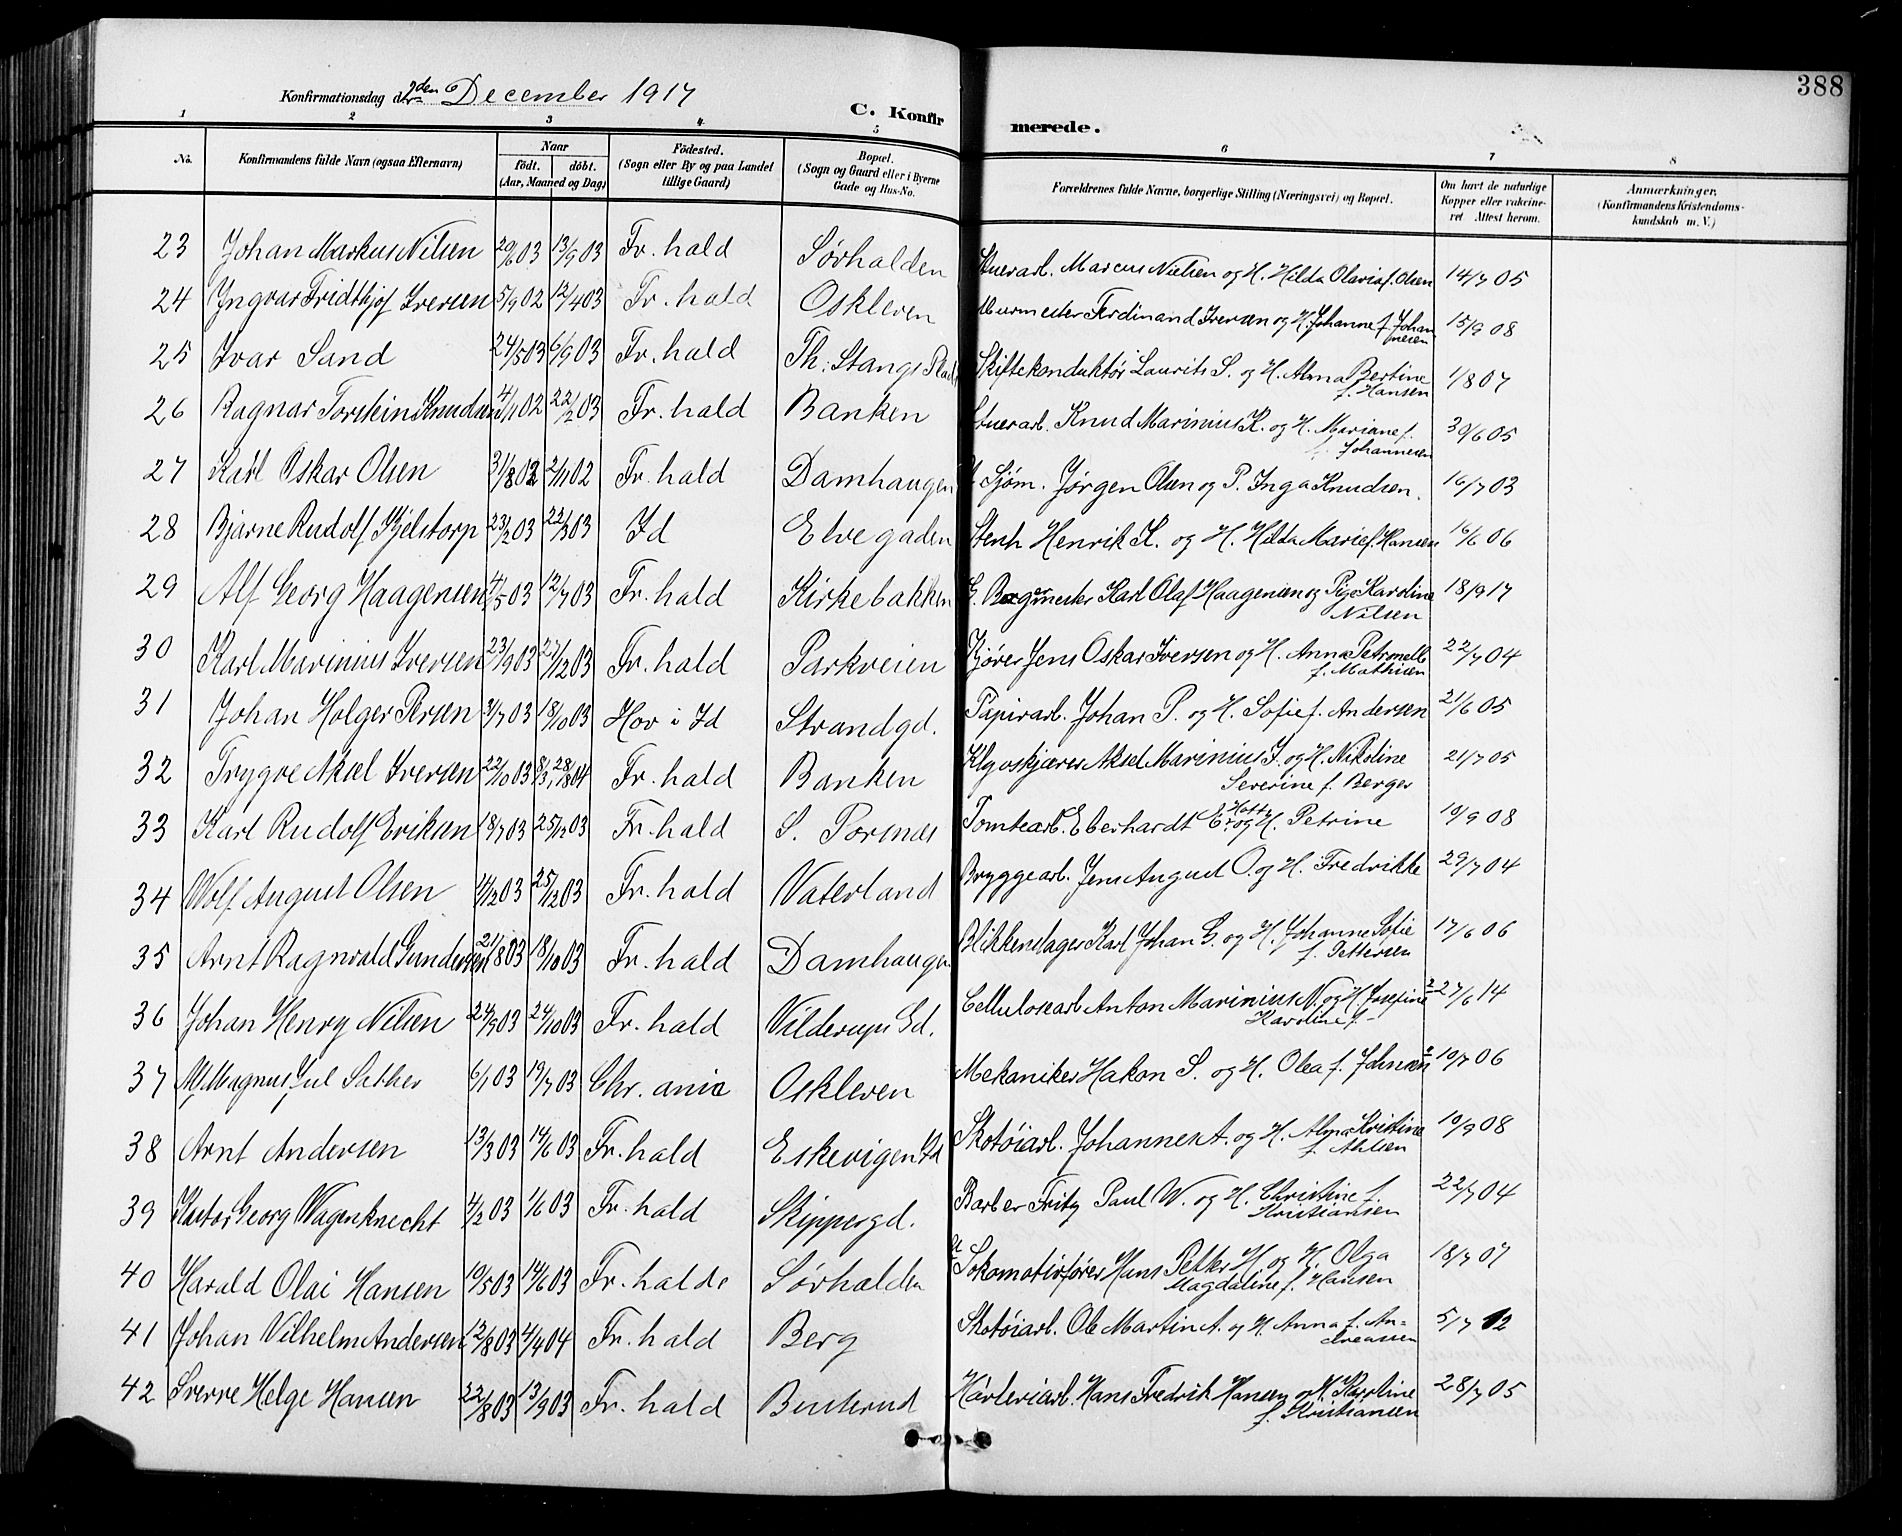 388
Konfirmationsdag den December 1917
C. Konfirmerede.
1 2 3 4 5 6 7 8
No. Konfirmandens fulde Navn (ogsaa Efternavn) Naar født. døbt. (Aar, Maaned og Dag) Fødested. (Sogn eller By og paa Landet tillige Gaard) Bopæl. (Sogn og Gaard eller i Byerne Gade og Hus-No. Forældrenes fulde Navne, borgerlige Stilling (Næringsvei) og Bopæl. Om havt de naturlige Kopper eller vakcineret. Attest herom. Anmærkninger. (Konfirmandens Kristendomskundskab m. V.)
23 Johan Markus Nilsen 29/6 03 13/9 03 Fr. hald Sørhalden Stuerarb. Marcus Nielsen og H. Hilda Olavia f. Olsen 14/7 05
24 Yngvar Fridthjof Iversen 5/9 02 12/4 03 Fr. hald Oskleven Murmester Ferdinand Iversen og H. Johanne f. Johannesen 15/9 08
25 Ivar Sand 24/5 03 6/9 03 Fr. hald Th. Stangs Plads Skiftekonduktør Laurits S. og H. Alma Bertine f. Hansen 1/8 07
26 Ragnar Torstein Knudsen 4/11 02 22/2 03 Fr. hald Banken Stuerarb. Knud Marinius K. og H. Mariane f. Johannesen 30/6 05
27 Karl Oskar Olsen 31/8 02 2/11 02 Fr. hald Damhaugen Sjøm. Jørgen Olsen og P. Inga Knudsen. 16/7 03
28 Bjarne Rudolf Kjelstorp 23/2 03 22/3 03 Id Elvegaden Stenh Henrik K. og H. Hilda Marie f. Hansen 16/6 06
29 Alf Georg Haagensen 4/5 03 12/7 03 Fr. hald Kirkebakken Karl Olaf Haagensen og Pige Karoline Nilsen 18/9 17
30 Karl Marinius Iversen 23/9 03 27/12 03 Fr. hald Parkveien Kjører Jens Oskar Iversen og H. Anna Petronelle f. Mathisen 22/7 04
31 Johan Holger Persen 3/7 03 18/10 03 Hov i Id Strandgd. Papirarb. Johan P. og H. Sofie f. Andersen 21/6 05
32 Trygve Aksel Iversen 22/10 03 28/8 04 Fr. hald Banken Aksel Marinius I. og H. Nikoline Severine f. Berger 21/7 05
33 Karl Rudolf Eriksen 18/7 03 25/12 03 Fr. hald S. Porsnæs Tomtearb. Eberhardt E. og H. Petrine 10/9 08
34 Wolf August Olsen 11/12 03 25/12 03 Fr. hald Vaterland Bryggearb. Jens August O. og H. Fredrikke 29/7 04
35 Arnt Ragnvald Gundersen 21/8 03 18/10 03 Fr. hald Damhaugen Blikkenslager Karl Johan G. og H. Johanne Sofie f. Pettersen 17/6 06
36 Johan Henry Nilsen 24/7 03 24/10 03 Fr. hald Vilderups Gd. Cellulosearb Anton Marinius N. og H. Josefine Karoline f. - 27/6 14
37 Magnus Jul Sather 6/1 03 19/7 03 Chr. ania Oskleven Mekaniker Hakon S. og H. Olea f. Johnsen 10/7 06
38 Arnt Andersen 13/3 03 14/6 03 Fr. hald Eskevigen Id Skotøiarb. Johannes A. og H. Alma Kristine f. Ahlsen 10/9 08
39 Georg Wagenknecht 4/2 03 1/6 03 Fr. hald Skippergd. Barber Fritz Paul W. og H. Christine f. Kristiansen 22/7 04
40 Harald Olai Hansen 10/5 03 14/6 03 Fr. halde Sørhalden Lokomotivfører Hans Petter H. og H. Olga Magdaline f. Hansen 18/7 07
41 Johan Vilhelm Andersen 12/8 03 4/4 04 Fr. hald Berg Skotøiarb. Ole Martin A. og H. Anna f. Andreassen 5/7 12
42 Sverre Helge Hansen 22/8 03 13/9 03 Fr. hald Busterud Hans Fredrik Hansen og H. Karoline f. Kristiansen 28/7 05